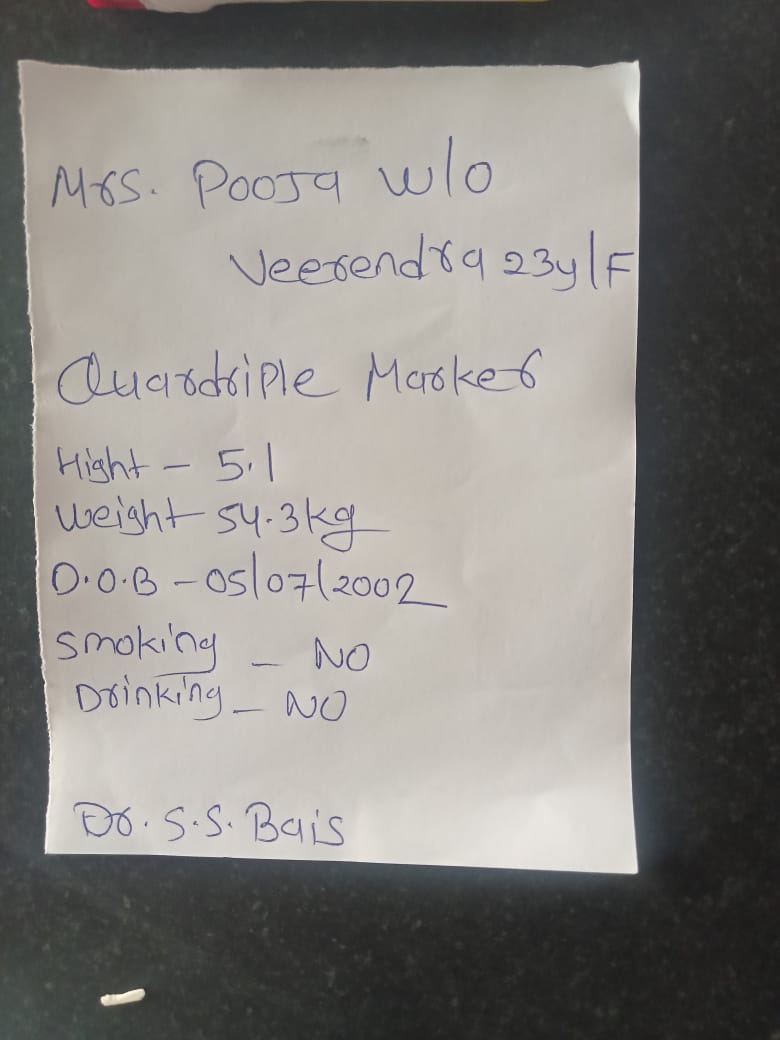 Mrs. Pooja w/o
Veerendra 23y/F
Quardriple Marker
Hight - 5.1
Weight 54.3kg
D.O.B - 05/07/2002
Smoking - NO
Drinking - NO
Dr. S.S. Bais